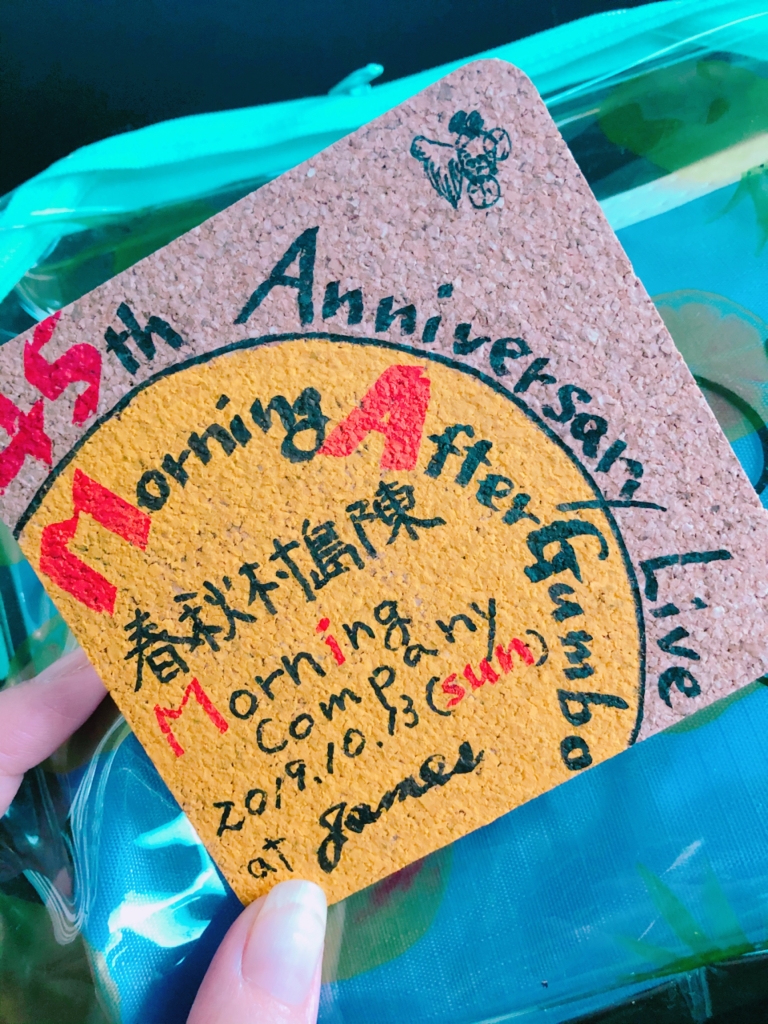 45th Anniversary Live
Morning After Gumbo
春秋村島陳
Morning
Company
2019.10.13(sun)
at James